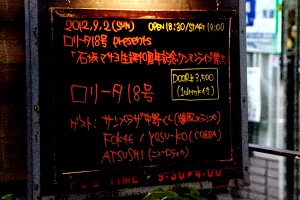 2012.9.2(SUN) OPEN 18:30/START 19:00
ロリータ18号 presents
「石坂マサヨ生誕40周年記念ワンマンライブ祭」
DOOR ¥3,500
(1drink付)
ロリータ18号
ゲスト: サンプラザ中野くん(爆風スランプ)
FOK46/YOSU-KO(COBRA)
ATSUSHI(ニューロティカ)
TIME 9:30